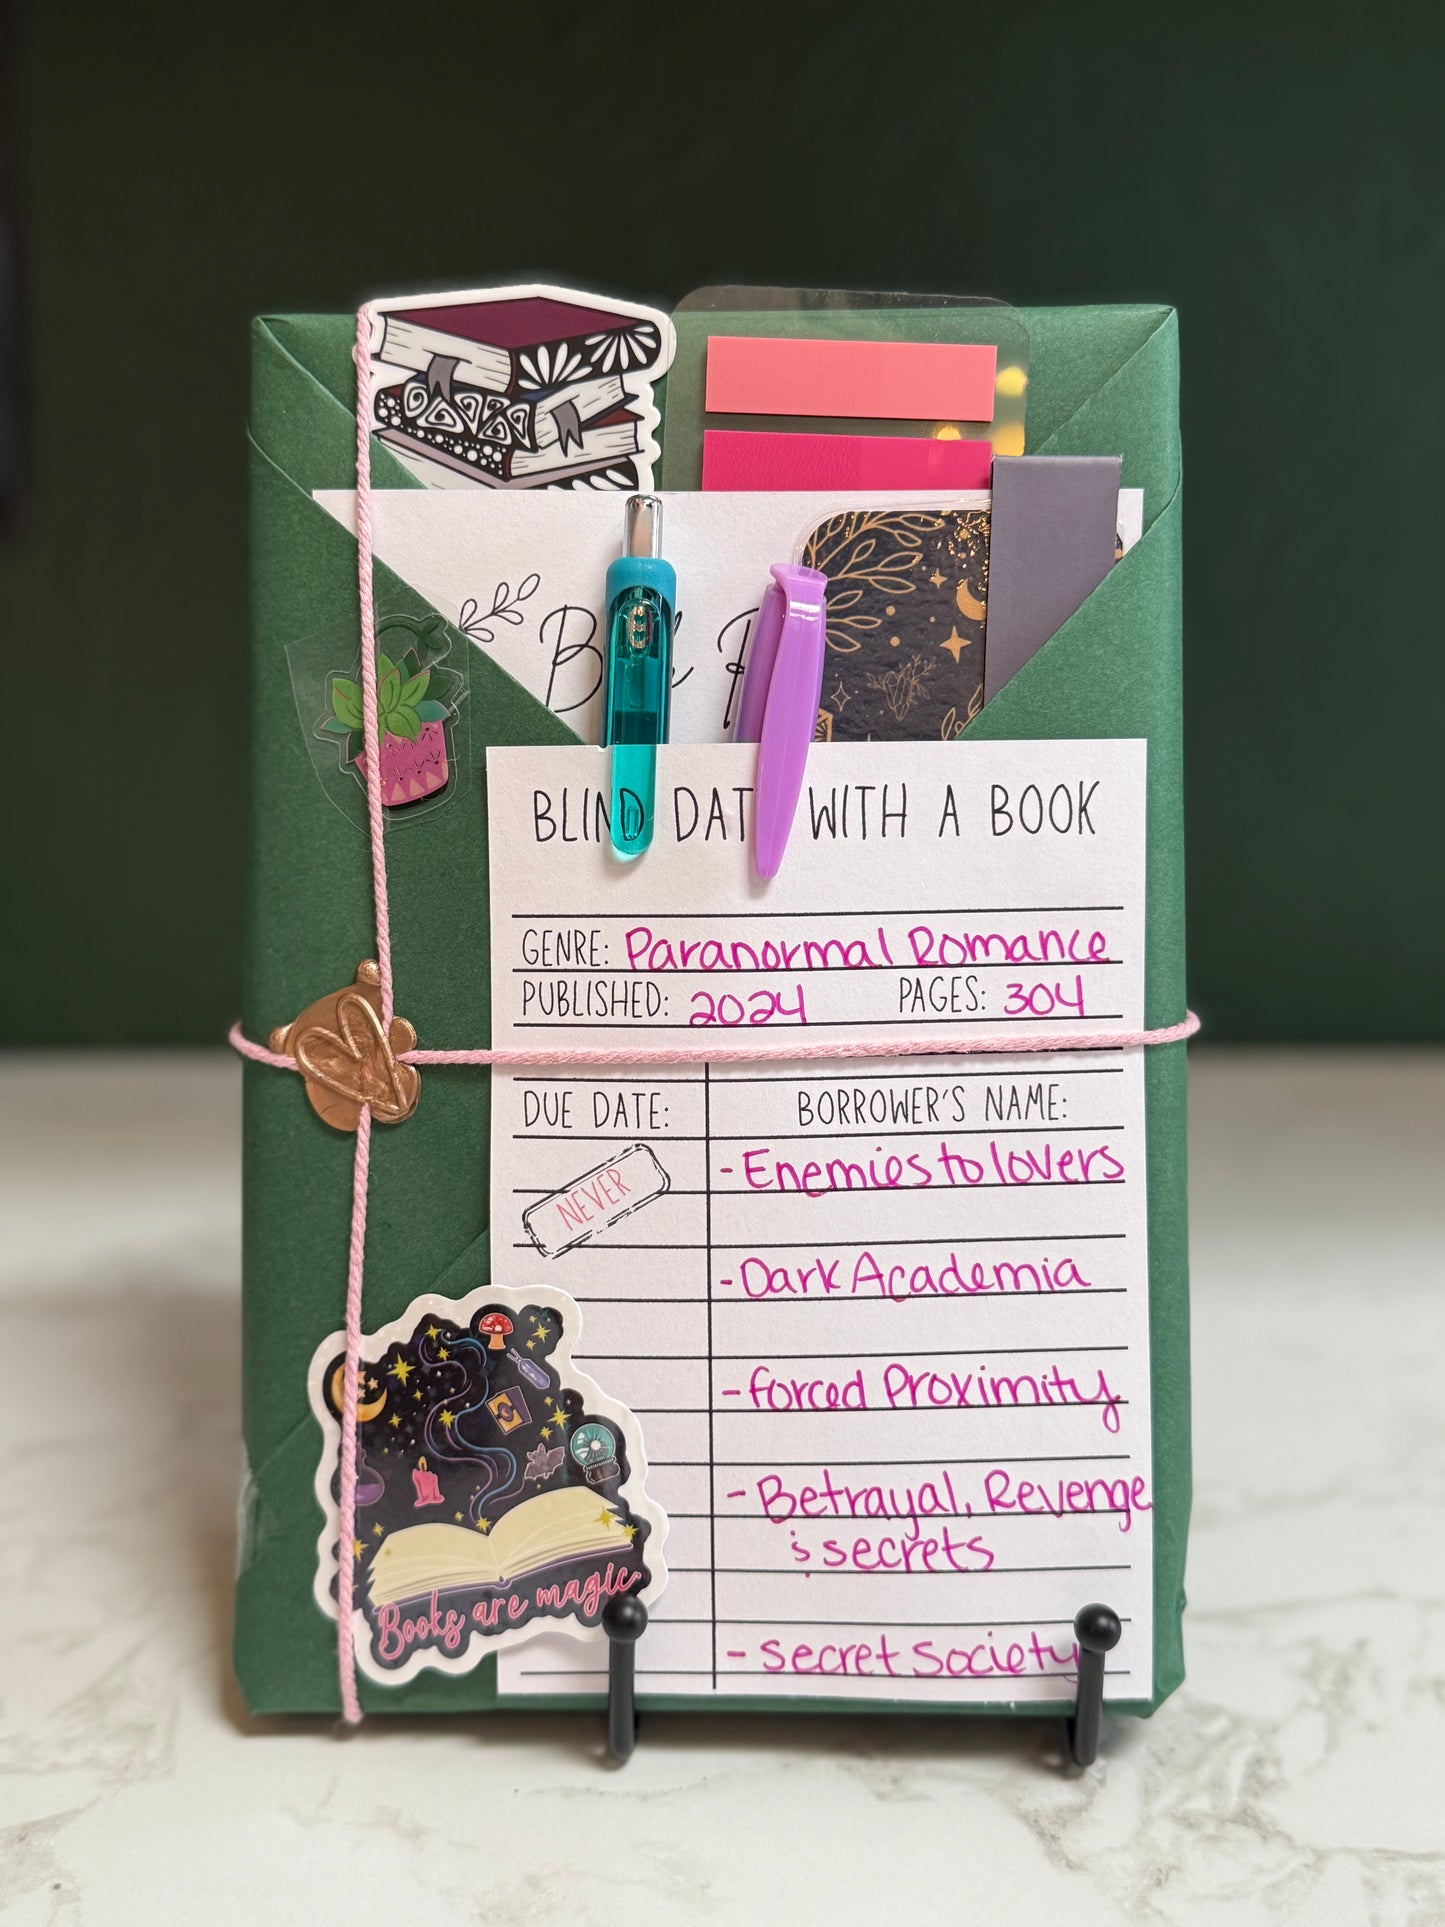 BLIND DATE WITH A BOOK
GENRE: Paranormal Romance
PUBLISHED: 2024 PAGES: 304
DUE DATE: BORROWER'S NAME:
NEVER
- Enemies to lovers
- Dark Academia
- forced Proximity
- Betrayal, Revenge
& secrets
- secret society
Books are magic